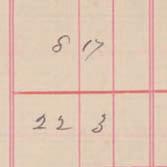 8 17
22 3